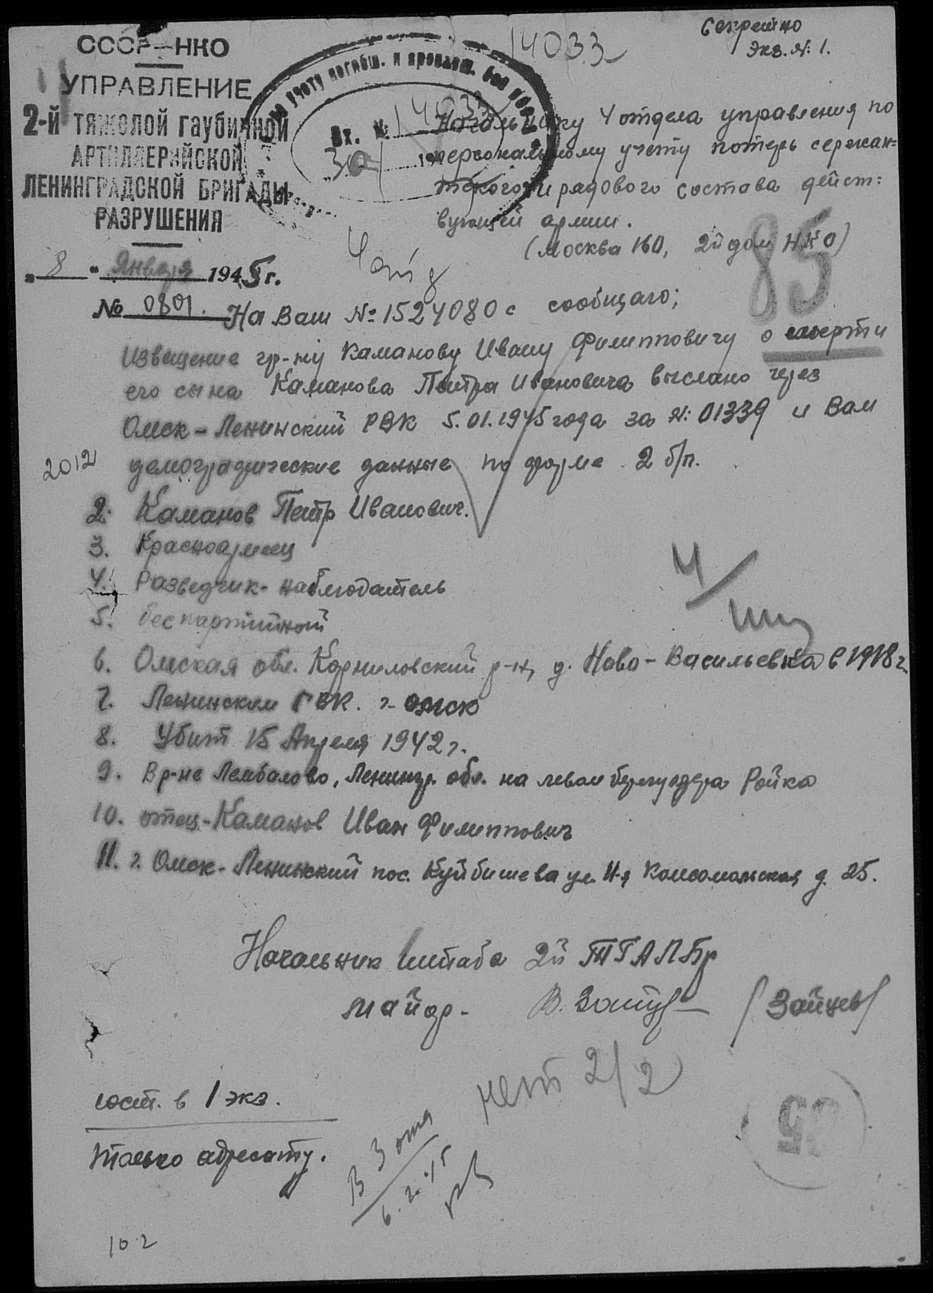 Секретно
Экз. № 1.
14033
СССР–НКО
УПРАВЛЕНИЕ
2-й тяжелой гаубичной
АРТИЛЛЕРИЙСКОЙ
ЛЕНИНГРАДСКОЙ БРИГАДЫ
РАЗРУШЕНИЯ
"8" Января 1945 г.
№ 0801.
учету погибш. и пропавш. без
Вх. № 14033
Начальнику 4 отдела управления по
персональному учету потерь сержан-
тского и рядового состава дейст-
вующей армии.
(Москва 160, 2й дом НКО)
85
На Ваш № 1524080с сообщаю;
Извещение гр-ну Каманову Ивану Филипповичу о смерти
его сына Каманова Петра Ивановича выслано через
Омск-Ленинский РВК 5.01.1945 года за № 01339 и Вам
демографические данные по форме 2 б/п.
2012
2. Каманов Петр Иванович.
3. Красноармеец
4. Разведчик-наблюдатель
5. беспартийный
6. Омская обл. Корниловский р-н, д. Ново-Васильевка в 1918 г.
7. Ленинским РВК. г. Омск
8. Убит 15 Апреля 1942 г.
9. В р-не Лембалово, Ленингр. обл. на левом берегу озера Ройка
10. отец-Каманов Иван Филиппович
11. г. Омск-Ленинский пос. Куйбишева ул. 4-я Комсомольская д. 25.
Начальник Штаба 2й ТГАЛБр
майор- /Зайцев/
нет 2/2
сост. в 1 экз.
только адресату.
В 3 отд
6.2.45
85
10.2